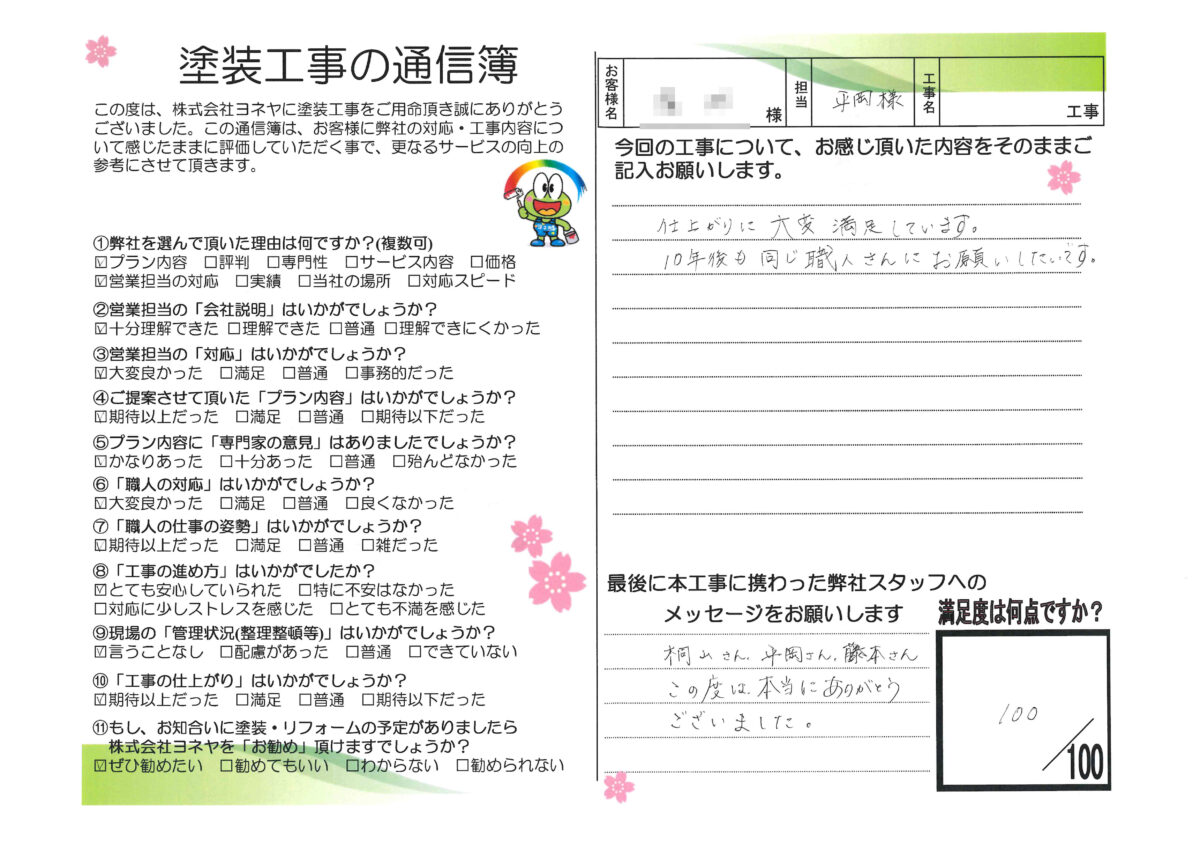 塗装工事の通信簿
この度は、株式会社ヨネヤに塗装工事をご用命頂き誠にありがとう
ございました。この通信簿は、お客様に弊社の対応・工事内容につ
いて感じたままに評価していただく事で、更なるサービスの向上の
参考にさせて頂きます。
①弊社を選んで頂いた理由は何ですか?(複数可)
☑プラン内容 □評判 □専門性 □サービス内容 □価格
☑営業担当の対応 □実績 □当社の場所 □対応スピード
②営業担当の「会社説明」はいかがでしょうか?
☑十分理解できた □理解できた □普通 □理解できにくかった
③営業担当の「対応」はいかがでしょうか?
☑大変良かった □満足 □普通 □事務的だった
④ご提案させて頂いた「プラン内容」はいかがでしょうか?
☑期待以上だった □満足 □普通 □期待以下だった
⑤プラン内容に「専門家の意見」はありましたでしょうか?
☑かなりあった □十分あった □普通 □殆んどなかった
⑥「職人の対応」はいかがでしょうか?
☑大変良かった □満足 □普通 □良くなかった
⑦「職人の仕事の姿勢」はいかがでしょうか?
☑期待以上だった □満足 □普通 □雑だった
⑧「工事の進め方」はいかがでしたか?
☑とても安心していられた □特に不安はなかった
□対応に少しストレスを感じた □とても不満を感じた
⑨現場の「管理状況(整理整頓等)」はいかがでしょうか?
☑言うことなし □配慮があった □普通 □できていない
⑩「工事の仕上がり」はいかがでしょうか?
☑期待以上だった □満足 □普通 □期待以下だった
⑪もし、お知合いに塗装・リフォームの予定がありましたら
株式会社ヨネヤを「お勧め」頂けますでしょうか?
☑ぜひ勧めたい □勧めてもいい □わからない □勧められない
お客様名 様 担当 平岡様 工事名 工事
今回の工事について、お感じ頂いた内容をそのままご
記入お願いします。
仕上がりに大変満足しています。
10年後も同じ職人さんにお願いしたいです。
最後に本工事に携わった弊社スタッフへの
メッセージをお願いします
桐山さん、平岡さん、藤本さん
この度は、本当にありがとう
ございました。
満足度は何点ですか?
100
/100